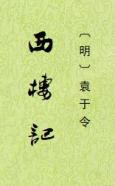 〔明〕袁于令
西樓記